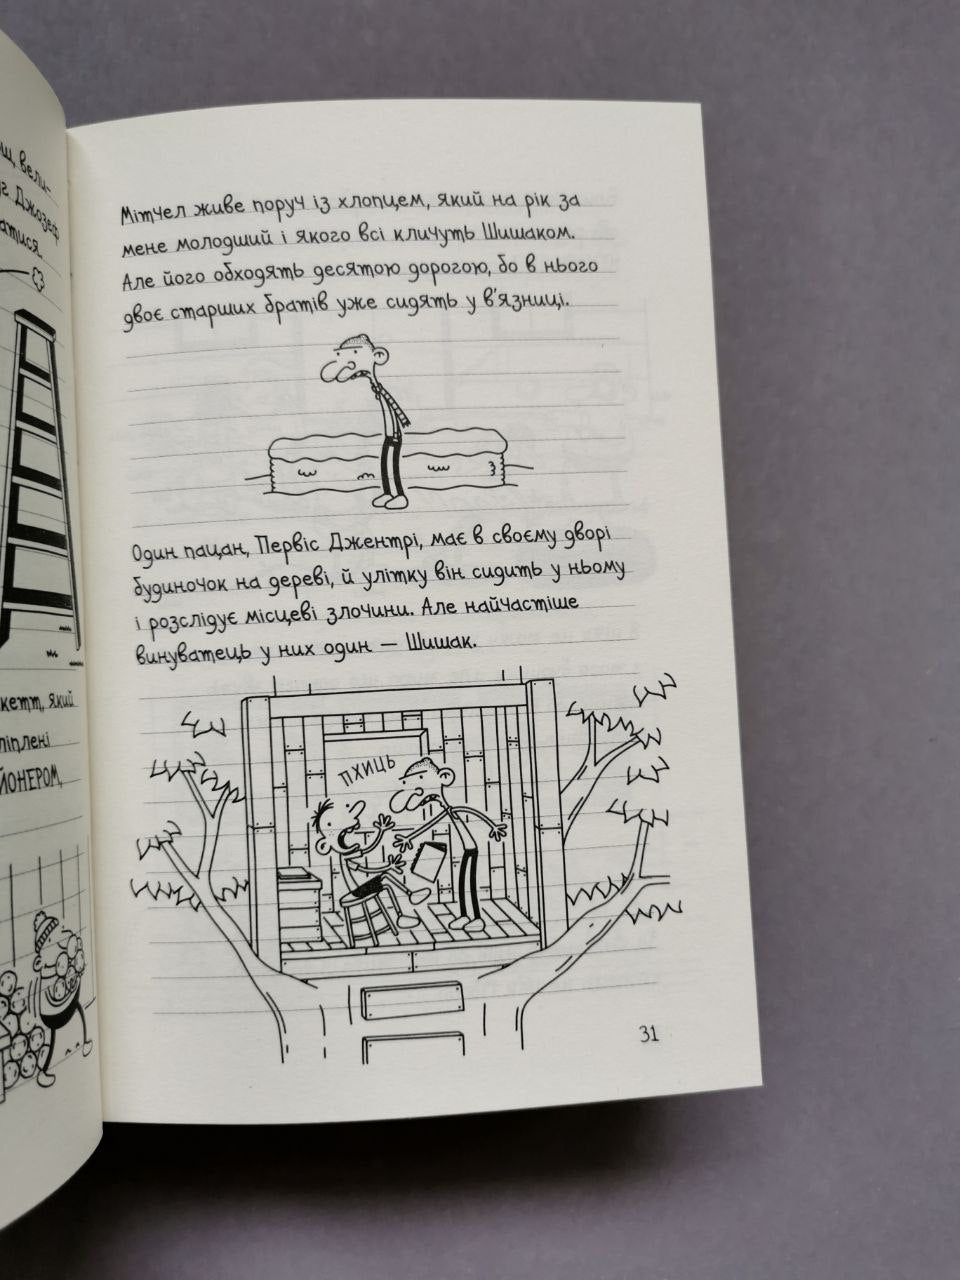 щ, вели-
г Джозеф
атися.
кетт, який
ліплені
ЙОНЕРОМ,
Мітчел живе поруч із хлопцем, який на рік за
мене молодший і якого всі кличуть Шишаком.
Але його обходять десятою дорогою, бо в нього
двоє старших братів уже сидять у в'язниці.
Один пацан, Первіс Джентрі, має в своєму дворі
будиночок на дереві, й улітку він сидить у ньому
і розслідує місцеві злочини. Але найчастіше
винуватець у них один — Шишак.
ПХИЦЬ
31